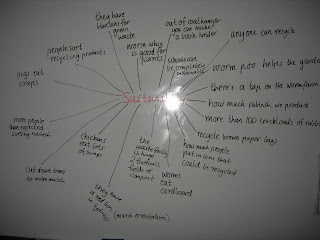 they have
for
green
waste
worm wee
is good for
plants
out of
you can make
a book holder
anyone can recycle
people sort
recycling products
schools can
be completely
worm poo helps the garden
pigs eat
scraps
there's a tap on the worm farm
Susta
how much rubbish we produce
more people
than expected
sorting rubbish
more than 100 truckloads of rubbish
recycle brown paper bags
chickens
eat lots
of scraps
how much
people
put in bins that
could be recycled
cut down trees
to make mulch
the
waste facility
is
2 football
fields of
compost
worms
eat
cardboard
they have
a red bin
in